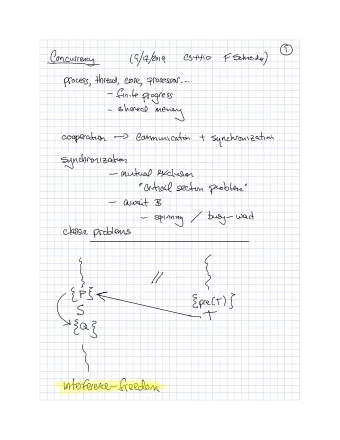 ①
Concurrency (5/17/2019 CS4410 F Schneider)
process, thread, core, processor....
- finite progress
- shared memory
cooperation → communication + synchronization
synchronization
- mutual exclusion
"critical section problem"
- await B
- spinning / busy-wait
classic problems
//
{P} {pre(T)}
S T
{Q}
interference-freedom